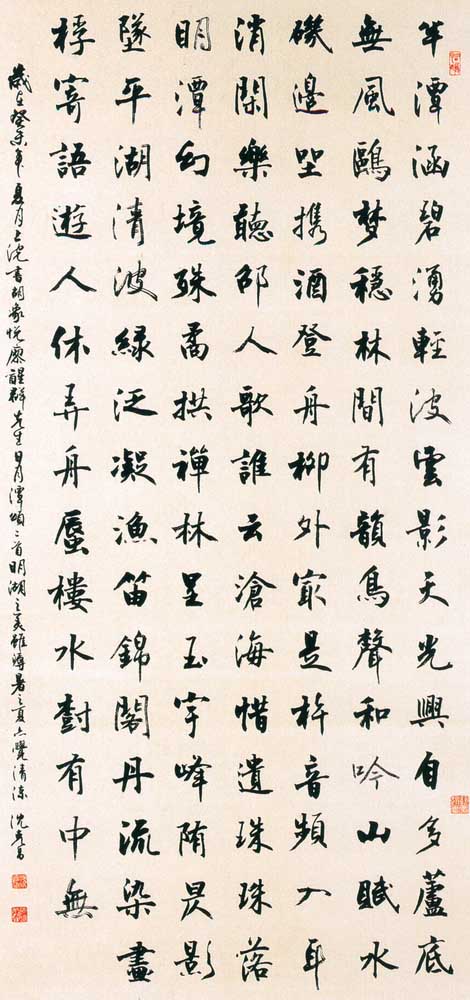 半潭涵碧湧輕波雲影天光興自多蘆底
無風鷗梦穩林間有韻鳥聲和吟山賦水
磯邊坐携酒登舟柳外冣是杵音頻入耳
消閑樂聽邵人歌誰云滄海惜遺珠珠落
明潭幻境殊矞拱禪林呈玉宇峰陏昃影
墜平湖清波綠泛凝漁笛錦閣丹流染畫
桴寄語遊人休弄舟蜃樓水對有中無
歲在癸未年夏月上浣書胡象悅廖醒群先生日月潭頌二首明湖之美雖溽暑之夏亦覺清涼 沈